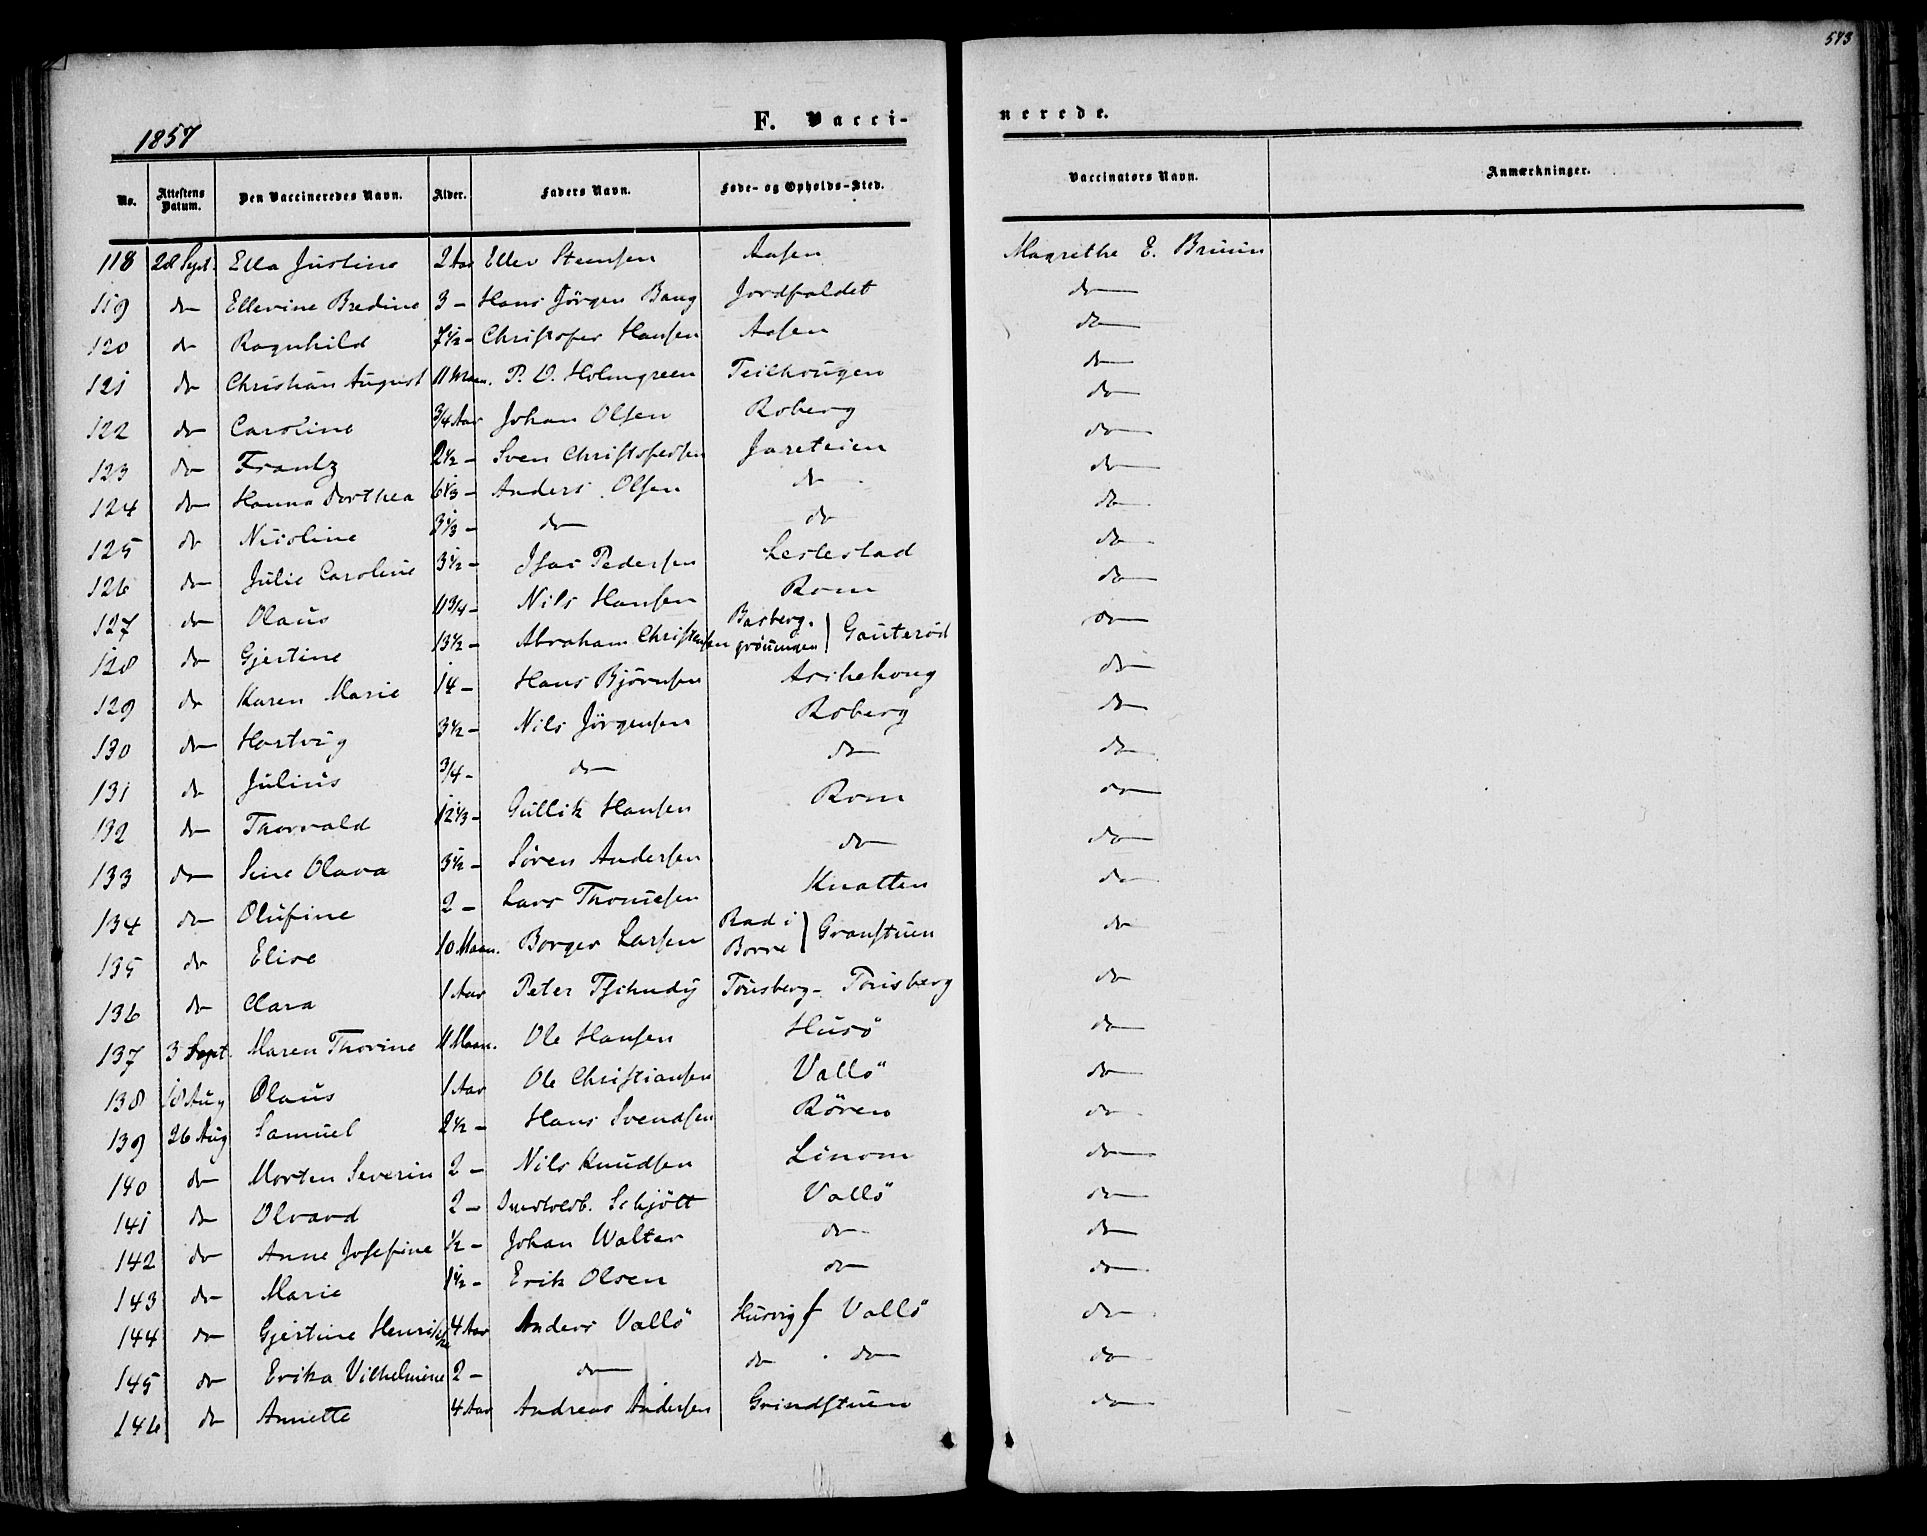 543
1857
F. Vacci-
nerede.
No. Attestens Datum. Den Vaccineredes Navn. Alder. Faders Navn. Føde- og Opholds-Sted. Vaccinators Navn. Anmærkninger.
118 28 Sept. Ella Justine 2 Aar Eller Steensen Aasen Magrethe E. Bruun
119 do Ellevine Bredine 3 - Hans Jörgen Baug Jordfaldet do
120 do Ragnhild 7½ - Christofer Hansen Aasen do
121 do Christian August 11 Maan. P. V. Holmgreen Teilhougen do
122 do Caroline ¾ Aar Johan Olsen Roberg do
123 do Frantz 2½ - Sven Christofersen Jareteien do
124 do Hanna Dorthea 6⅓ - Anders Olsen do do
125 do Nicoline 3⅓ - do do do
126 do Julie Caroline 3½ - Isac Pedersen Lestestad do
127 do Olaus 11¾ - Nils Hansen Rom do
128 do Gjertine 13½ - Abraham Christensen Basberg. grönningen } Gauterød do
129 do Karen Marie 14 - Hans Björnsen Askehoug do
130 do Hartvig 3½ - Nils Jörgensen Roberg do
131 do Julius ¾ - do do do
132 do Thorvald 12⅓ - Gullik Hansen Rom do
133 do Sine Olava 3½ - Sören Andersen do do
134 do Olufine 2 - Lars Thomesen Knatten do
135 do Elise 10 Maan. Borger Larsen Rad i Borre } Granstuen do
136 do Clara 1 Aar Peter Tschudy Tönsberg - Tönsberg do
137 3 Sept. Maren Thorine 11 Maan. Ole Hansen Husö do
138 18 Aug Olaus 1 Aar Ole Christiansen Vallö do
139 26 Aug Samuel 2½ - Hans Svendsen Rören do
140 do Morten Severin 2 - Nils Knudsen Linom do
141 do Olvard 2 - Schjött Vallö do
142 do Anne Josefine ½ - Johan Walter do do
143 do Marie 1½ - Erik Olsen do do
144 do Gjertine 4 Aar Anders Vallö Husvig f Vallö do
145 do Erika Vilhelmine 2 - do do do do
146 do Annette 4 Aar Andreas Andersen Grindstuen do